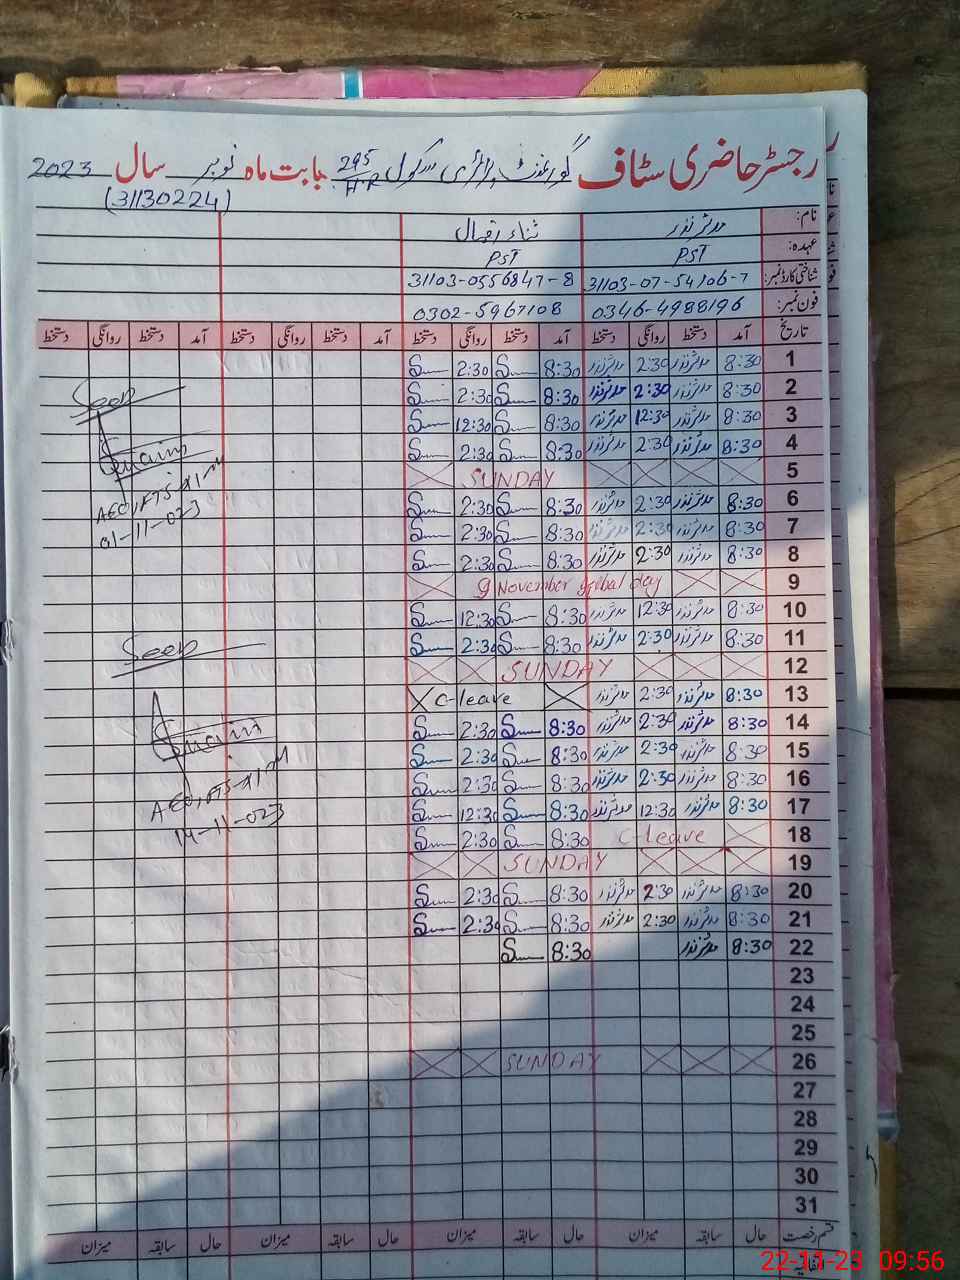 رجسٹر حاضری سٹاف گورنمنٹ پرائمری سکول 295 H.R بابت ماہ نومبر سال 2023
(31130224)
نام: مدثر نذر
عہدہ: PST PST
شناختی کارڈ نمبر: 31103-07-54106-7 31103-0556847-8
فون نمبر: 0346-4988196 0302-5967108
تاریخ آمد دستخط روانگی دستخط آمد دستخط روانگی دستخط آمد دستخط روانگی دستخط آمد دستخط روانگی دستخط
1 8:30 مدثر نذر 2:30 مدثر نذر 8:30 2:30
2 8:30 مدثر نذر 2:30 مدثر نذر 8:30 2:30
Seen
3 8:30 مدثر نذر 12:30 مدثر نذر 8:30 12:30
4 8:30 مدثر نذر 2:30 مدثر نذر 8:30 2:30
5 SUNDAY
6 8:30 مدثر نذر 2:30 مدثر نذر 8:30 2:30
7 8:30 مدثر نذر 2:30 مدثر نذر 8:30 2:30
01-11-023
8 8:30 مدثر نذر 2:30 مدثر نذر 8:30 2:30
9 9 November global day
10 8:30 مدثر نذر 12:30 مدثر نذر 8:30 12:30
11 8:30 مدثر نذر 2:30 مدثر نذر 8:30 2:30
Seen
12 SUNDAY
13 8:30 مدثر نذر 2:30 مدثر نذر C-leave
14 8:30 مدثر نذر 2:30 مدثر نذر 8:30 2:30
15 8:30 مدثر نذر 2:30 مدثر نذر 8:30 2:30
16 8:30 مدثر نذر 2:30 مدثر نذر 8:30 2:30
17 8:30 مدثر نذر 12:30 مدثر نذر 8:30 12:30
14-11-023
18 C-leave 8:30 2:30
19 SUNDAY
20 8:30 مدثر نذر 2:30 مدثر نذر 8:30 2:30
21 8:30 مدثر نذر 2:30 مدثر نذر 8:30 2:30
22 8:30 مدثر نذر 8:30
23
24
25
26 SUNDAY
27
28
29
30
31
قسم رخصت حال سابقہ میزان حال سابقہ میزان حال سابقہ میزان حال سابقہ میزان
اتفاقیہ
22-11-23 09:56